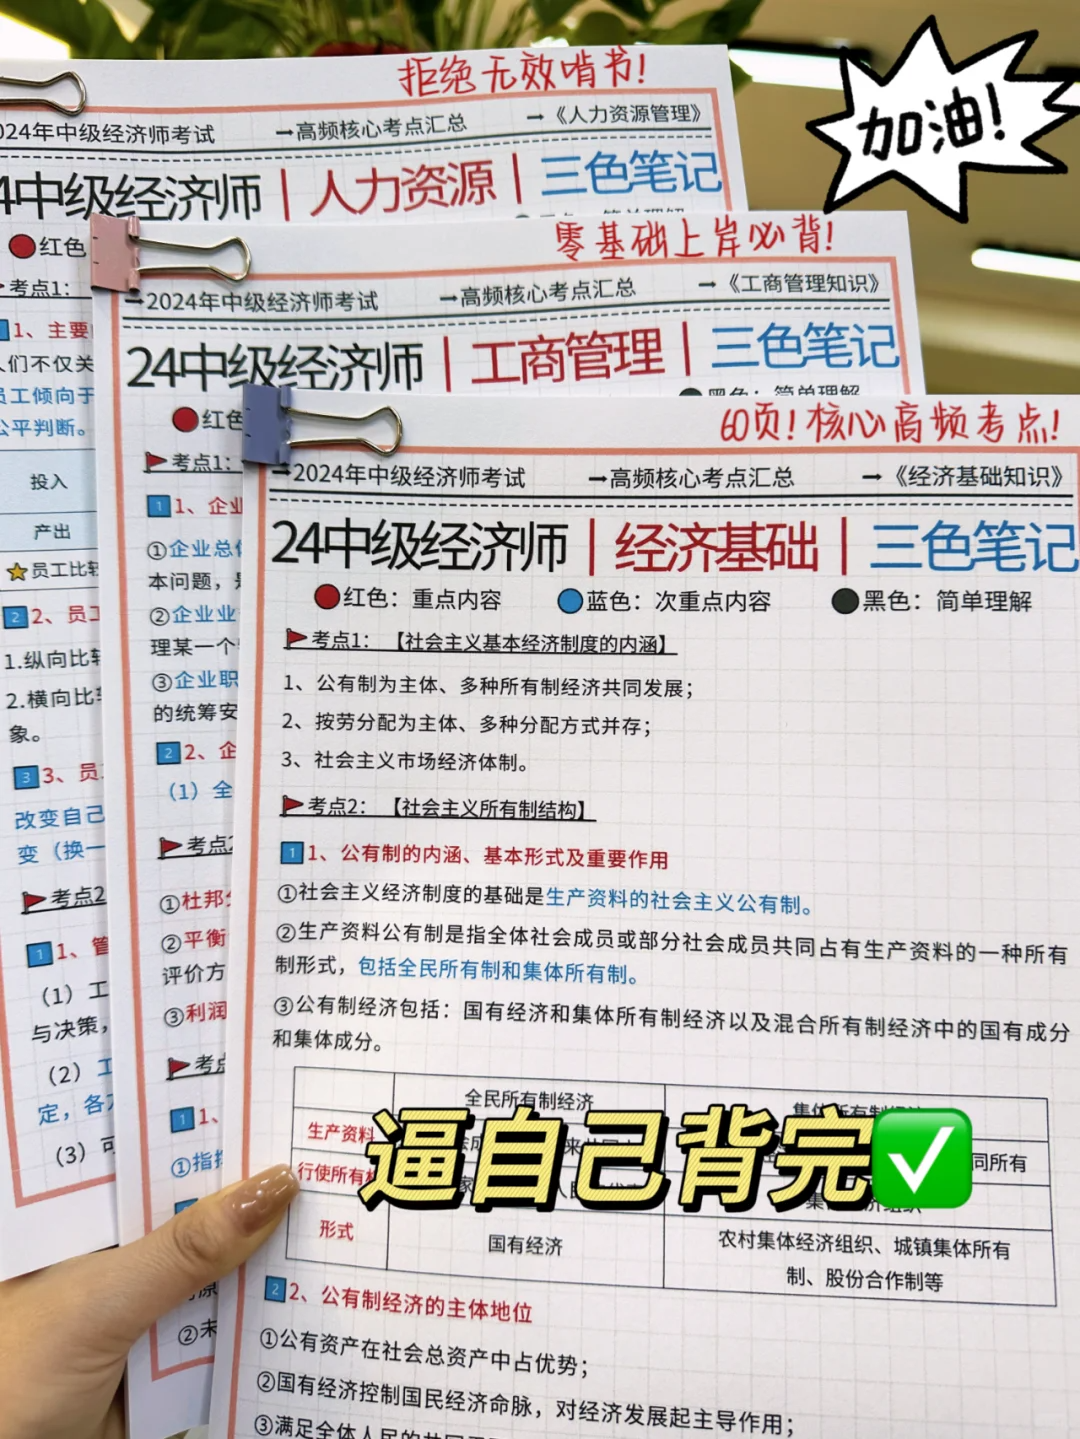 加油!
拒绝无效啃书!
024年中级经济师考试 →高频核心考点汇总 →《人力资源管理》
4中级经济师|人力资源|三色笔记
红色
考点1:
1、主要
人们不仅关
员工倾向于
公平判断。
投入
产出
员工比较
2 2、员工
1.纵向比较
2.横向比较
象。
3 3、员
改变自己
变（换一
考点2
1 1、管
（1）工
与决策，
（2）工
定，各
（3）可
零基础上岸必背!
→2024年中级经济师考试 →高频核心考点汇总 →《工商管理知识》
24中级经济师|工商管理|三色笔记
红色 黑色：简单理解
考点1:
1 1、企业
①企业总体
本问题，
②企业业
理某一个
③企业职
的统筹安
2 2、企
（1）全
考点2
①杜邦分
②平衡
评价方
③利润
考点
1 1、
①指挥
②未
60页!核心高频考点!
→2024年中级经济师考试 →高频核心考点汇总 →《经济基础知识》
24中级经济师|经济基础|三色笔记
红色：重点内容 蓝色：次重点内容 黑色：简单理解
考点1：【社会主义基本经济制度的内涵】
1、公有制为主体、多种所有制经济共同发展；
2、按劳分配为主体、多种分配方式并存；
3、社会主义市场经济体制。
考点2：【社会主义所有制结构】
1 1、公有制的内涵、基本形式及重要作用
①社会主义经济制度的基础是生产资料的社会主义公有制。
②生产资料公有制是指全体社会成员或部分社会成员共同占有生产资料的一种所有
制形式，包括全民所有制和集体所有制。
③公有制经济包括：国有经济和集体所有制经济以及混合所有制经济中的国有成分
和集体成分。
全民所有制经济
生产资料 同所有
行使所有权
形式 国有经济 农村集体经济组织、城镇集体所有
制、股份合作制等
逼自己背完
2 2、公有制经济的主体地位
①公有资产在社会总资产中占优势；
②国有经济控制国民经济命脉，对经济发展起主导作用；
③满足全体人民的共同